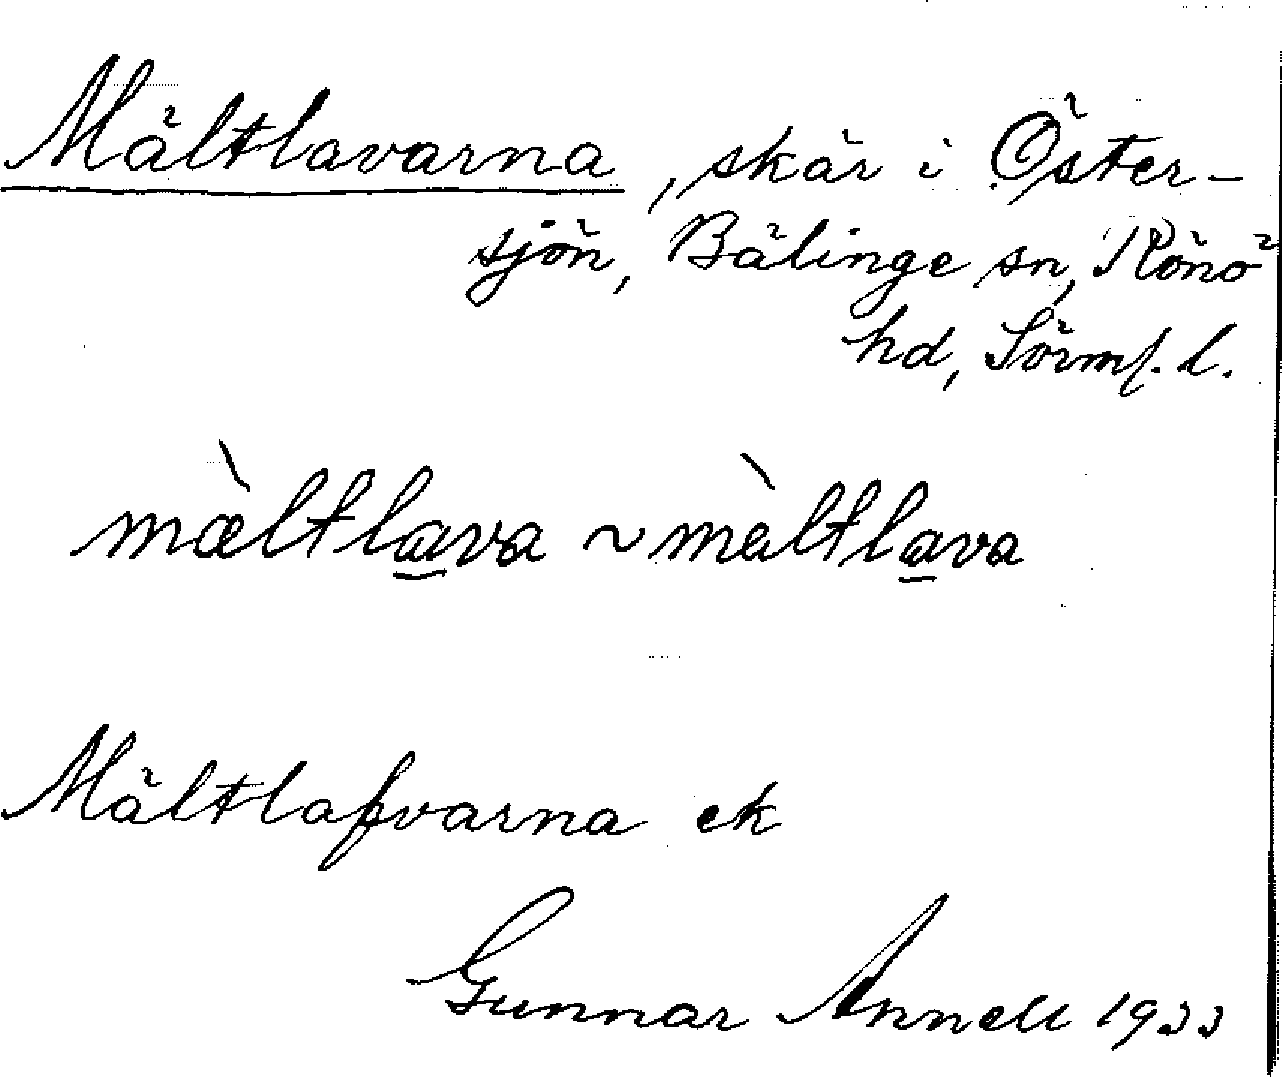 Mältlavarna, skär i Öster-
sjön, Bälinge sn, Rönö
hd, Sörml. l.
mæ̀ltlava ~ mæ̀ltlava
Mältlafvarna ek
Gunnar Annell 1933